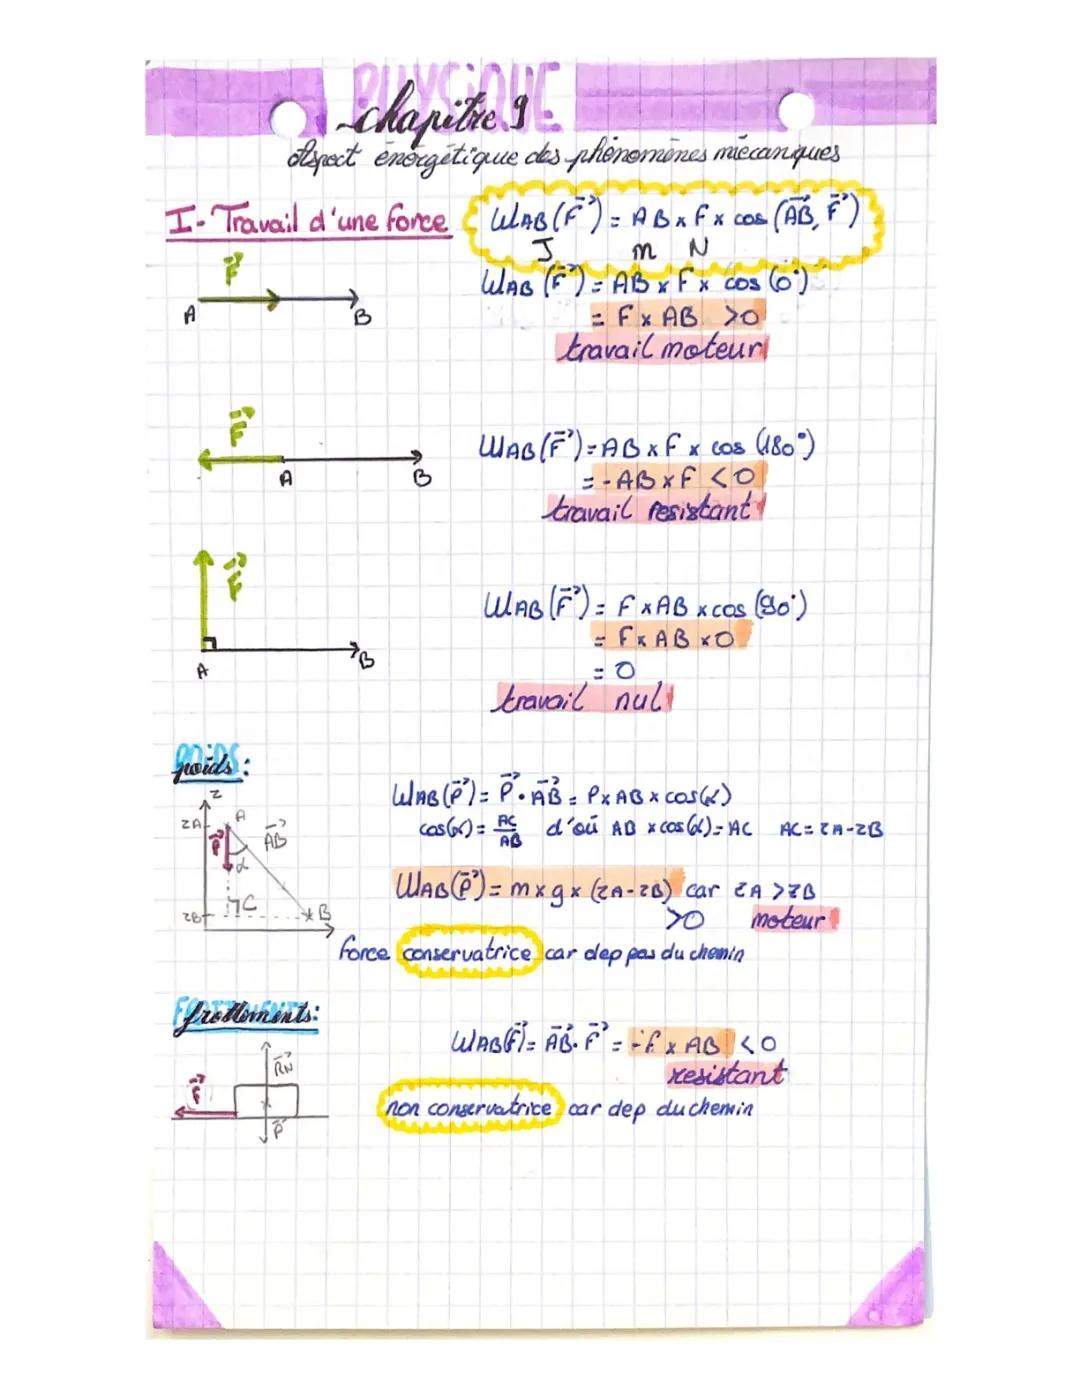 PHYSIQUE
chapitre 9
Aspect énergétique des phénomènes mécaniques
I- Travail d'une force
WAB(F⃗) = AB x F x cos (AB⃗, F⃗)
J m N
F⃗
A B
WAB (F⃗) = AB x F x cos (0°)
= F x AB >0
travail moteur
F⃗
A B
WAB (F⃗) = AB x F x cos (180°)
= - AB x F <0
travail resistant
F⃗
A B
WAB (F⃗) = F x AB x cos (90°)
= F x AB x 0
= 0
travail nul
POIDS
poids :
z
zA A
P⃗ AB⃗
α
C
zB B
WAB(P⃗) = P⃗ . AB⃗ = P x AB x cos(α)
cos(α) = AC/AB d'où AB x cos(α) = AC AC = zA - zB
WAB(P⃗) = m x g x (zA - zB) car zA > zB
>0 moteur
force conservatrice car dep pas du chemin
FROTTEMENTS
frottements:
RN⃗
F⃗
P⃗
WAB(f⃗) = AB⃗ . F⃗ = - f x AB <0
resistant
non conservatrice car dep du chemin